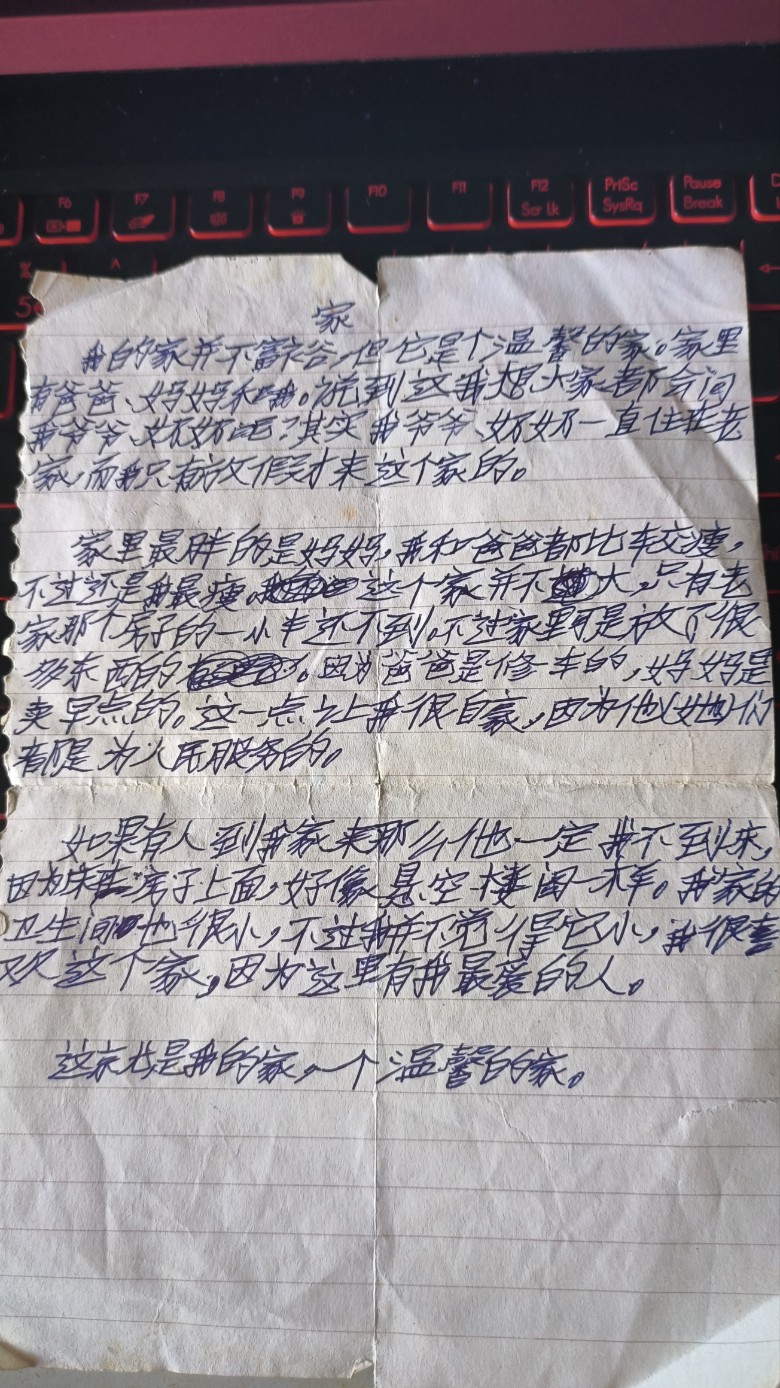 F6
F7
F8
F9
F10
F11
F12
Scr Lk
PrtSc
SysRq
Pause
Break
%
5
^
家
我的家并不富裕,但它是个温馨的家。家里
有爸爸、妈妈和我。说到这我想大家都会问
我爷爷、奶奶呢?其实我爷爷、奶奶一直住在老
家,而我只有放假才来这个家的。
家里最胖的是妈妈,我和爸爸都比较瘦,
不过还是我最瘦。这个家并不大,只有老
家那个房子的一小半还不到。不过家里可是放了很
多东西的。因为爸爸是修车的,妈妈是
卖早点的。这一点让我很自豪,因为他(她)们
都是为人民服务的。
如果有人到我家来那么他一定找不到床,
因为床在房子上面,好像悬空楼阁一样。我家的
卫生间也很小,不过我并不觉得它小,我很喜
欢这个家,因为这里有我最爱的人。
这就是我的家,一个温馨的家。